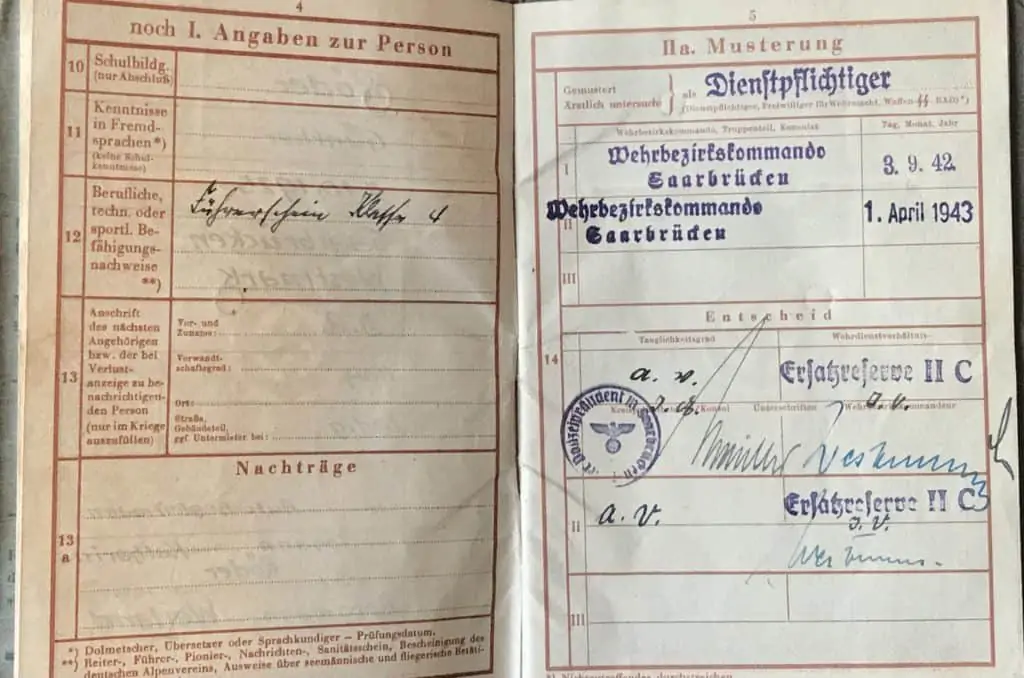 4
noch I. Angaben zur Person
10
Schulbildg.
(nur Abschluß)
11
Kenntnisse
in Fremd-
sprachen*)
(keine Schul-
kenntnisse)
12
Berufliche,
techn. oder
sportl. Be-
fähigungs-
nachweise
**)
Führerschein Klasse 4
13
Anschrift
des nächsten
Angehörigen
bzw. der bei
Verlust-
anzeige zu be-
nachrichtigen-
den Person
(nur im Kriege
auszufüllen)
Vor- und
Zuname:
Verwandt-
schaftsgrad:
Ort:
Straße,
Gebäudeteil,
ggf. Untermieter bei:
Nachträge
13
a
*) Dolmetscher, Übersetzer oder Sprachkundiger – Prüfungsdatum.
**) Reiter-, Führer-, Pionier-, Nachrichten-, Sanitätsschein, Bescheinigung des
deutschen Alpenvereins, Ausweise über seemännische und fliegerische Betäti-
5
IIa. Musterung
Gemustert
Ärztlich untersucht } als Dienstpflichtiger
(Dienstpflichtiger, Freiwilliger für Wehrmacht, Waffen-SS RAD*)
Wehrbezirkskommando, Truppenteil, Konsulat
Tag, Monat, Jahr
I
Wehrbezirkskommando
Saarbrücken
3. 9. 42.
II
Wehrbezirkskommando
Saarbrücken
1. April 1943
III
Entscheid
14
Tauglichkeitsgrad
Wehrdienstverhältnis
I
a. v.
Ersatzreserve II C
Unterschriften
J. V.
II
a. v.
Ersatzreserve II C
J. V.
III